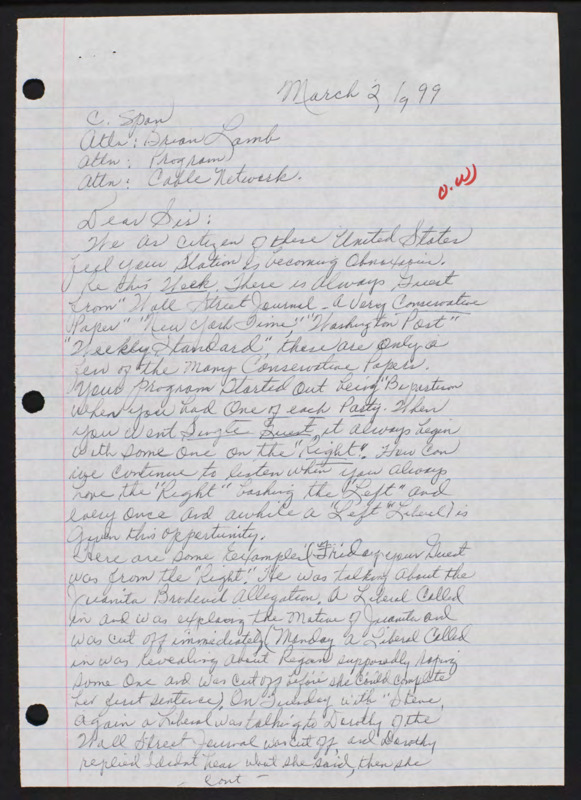 March 2, 1999
C. Span
Attn: Brian Lamb
Attn: Program
Attn: Cable Network.
O.W)
Dear Sir:
We as citizen of these United States
feel your Station is becoming Obnoxious.
Re this Week. There is always Guest
from "Wall Street Journal - A Very Conservative
Paper" "New York Time," "Washington Post"
"Weekly Standard", these are only a
few of the Many Conservative Papers.
Your Program Started Out being "Bipartisan
when you had One of each Party. When
you went Single Guest, it always begin
with some One on the "Right". How can
we continue to listen when you always
have the "Right" bashing the "Left" and
every once and awhile a "Left" (Liberal) is
given this opportunity.
Here are some Examples (Friday your Guest
was from the "Right". He was talking About the
Juanita Allegation. A Liberal Called
in and was exploring the Motive of Juanita and
was cut off immediately (Monday a Liberal Called
in was revealing about Regan supposedly raping
some One and was cut off before she could complete
her first sentence). On Tuesday with "Steve,
again a Liberal was talking to Dorothy of the
Wall Street Journal was cut off and Dorothy
replied I didnt hear what she said, then she
- Cont -